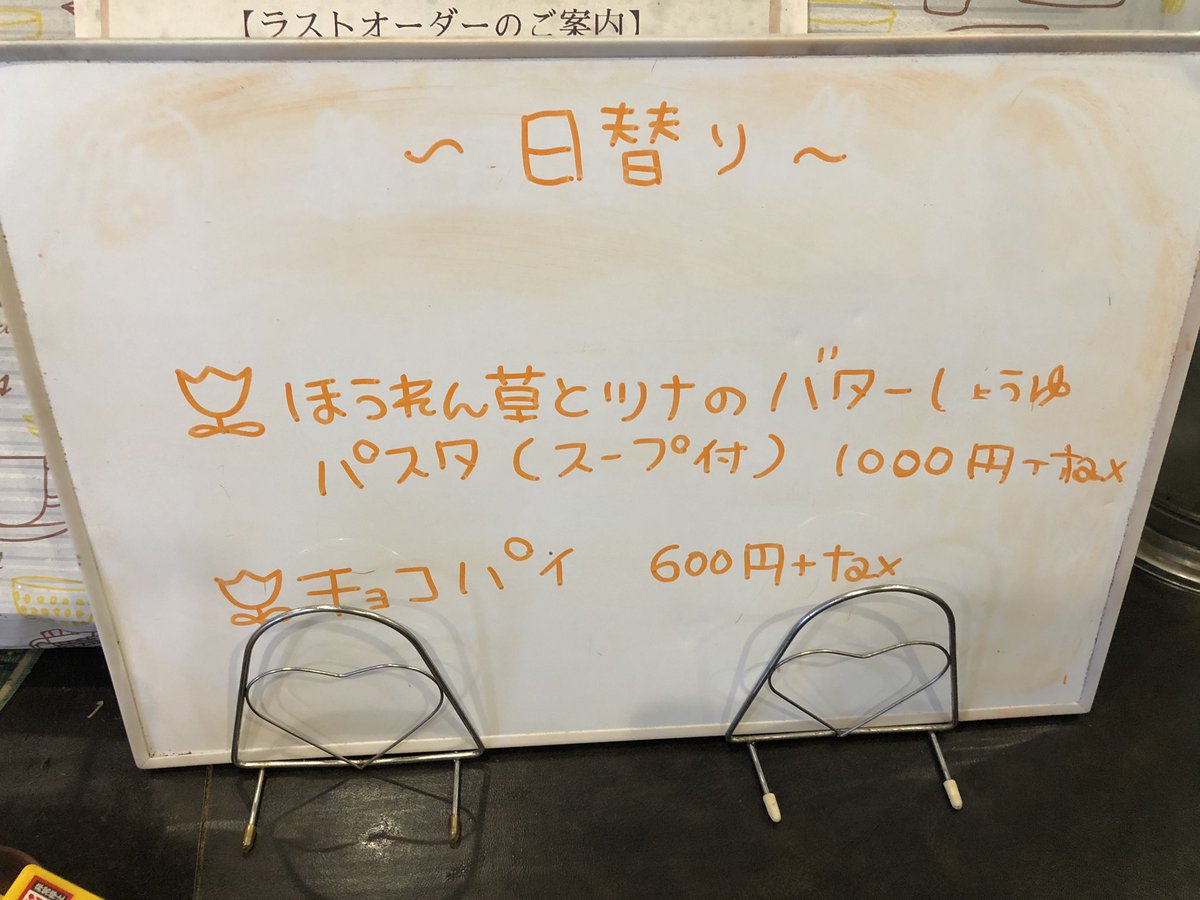 【ラストオーダーのご案内】
～日替り～
ほうれん草とツナのバターしょうゆ
パスタ(スープ付) 1000円+tax
チョコパイ 600円+tax